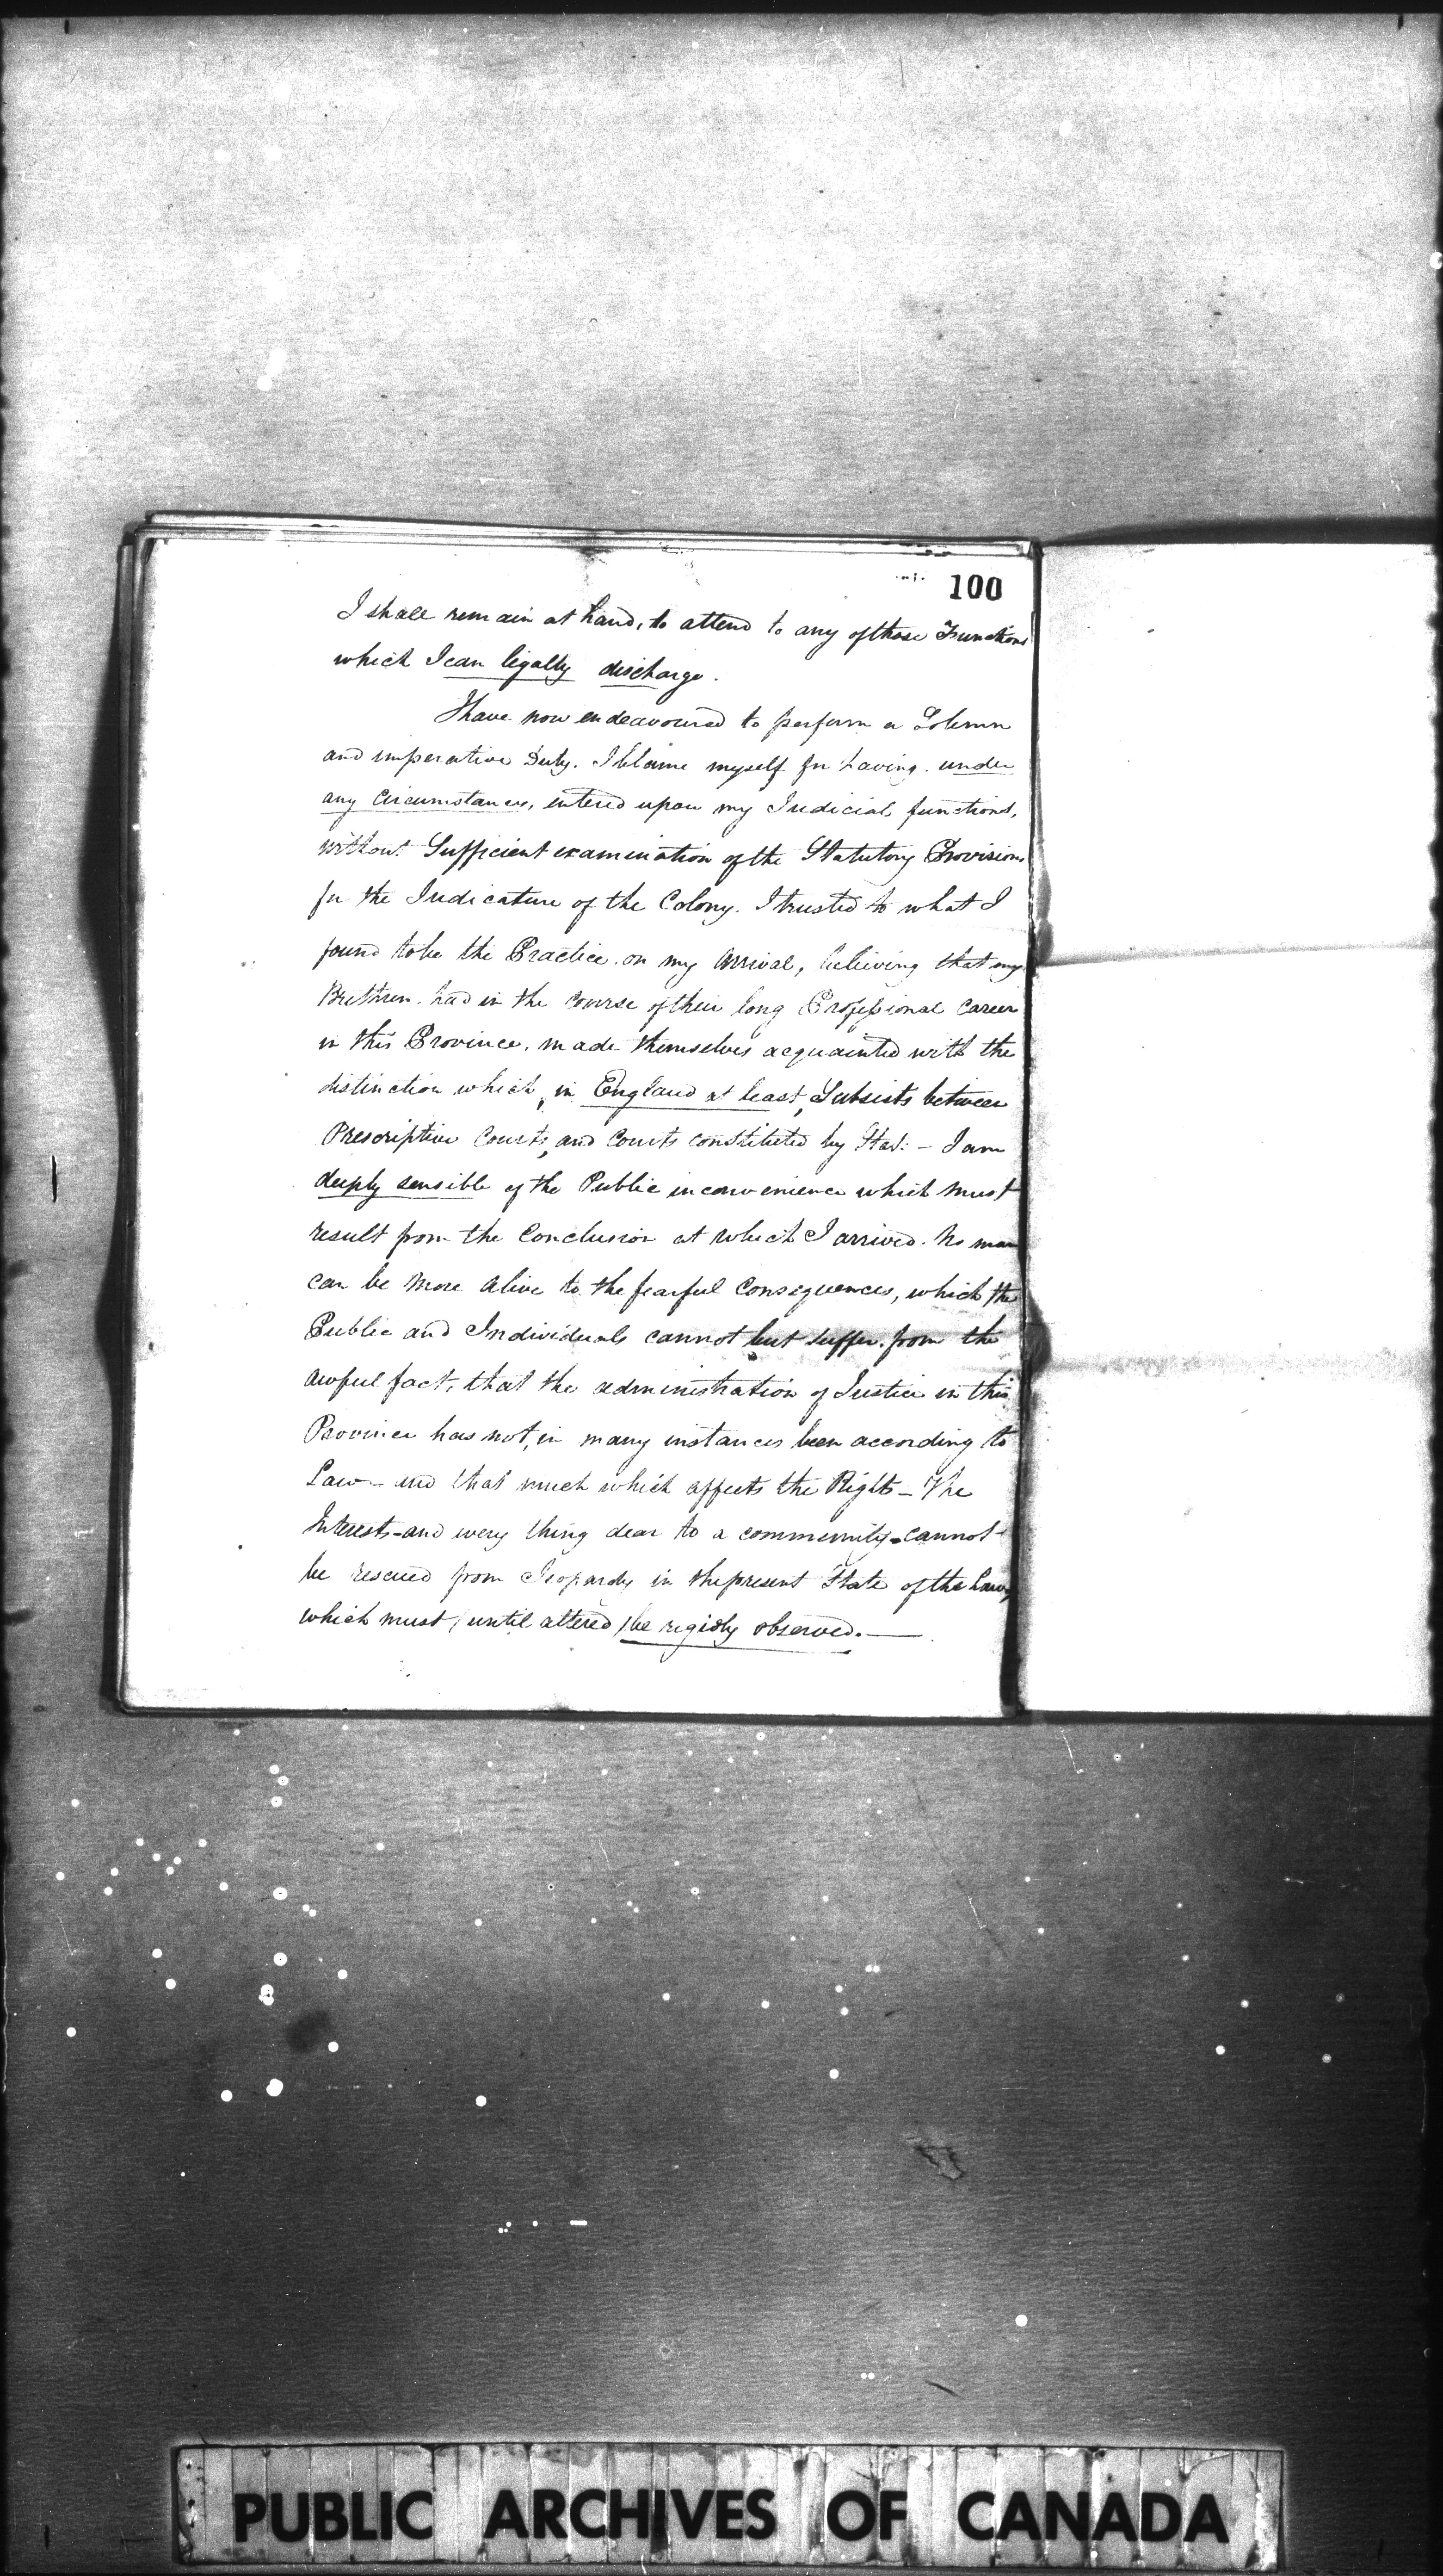 100
I shall remain at hand, to attend to any of those Functions
which I can legally discharge.
I have now endeavoured to perform a Solemn
and imperative Duty. I blame myself for having, under
any Circumstances, entered upon my Judicial functions,
without Sufficient examination of the Statutory Provisions
for the Judicature of the Colony. I trusted to what I
found to be the Practice on my Arrival, believing that my
Brethren had in the course of their long Professional Career
in this Province, made themselves acquainted with the
distinction which, in England at least, Subsists between
Prescriptive Courts, and Courts constituted by Stat: - I am
deeply sensible of the Public inconvenience which must
result from the Conclusion at which I arrived. No man
can be more alive to the fearful Consequences, which the
Public and Individuals cannot but suffer from the
awful fact, that the administration of Justice in this
Province has not, in many instances been according to
Law - and that much which affects the Rights - The
Interests - and every thing dear to a community - cannot
be rescued from Jeopardy in the present State of the Law,
which must / until altered / be rigidly observed. —
PUBLIC ARCHIVES OF CANADA